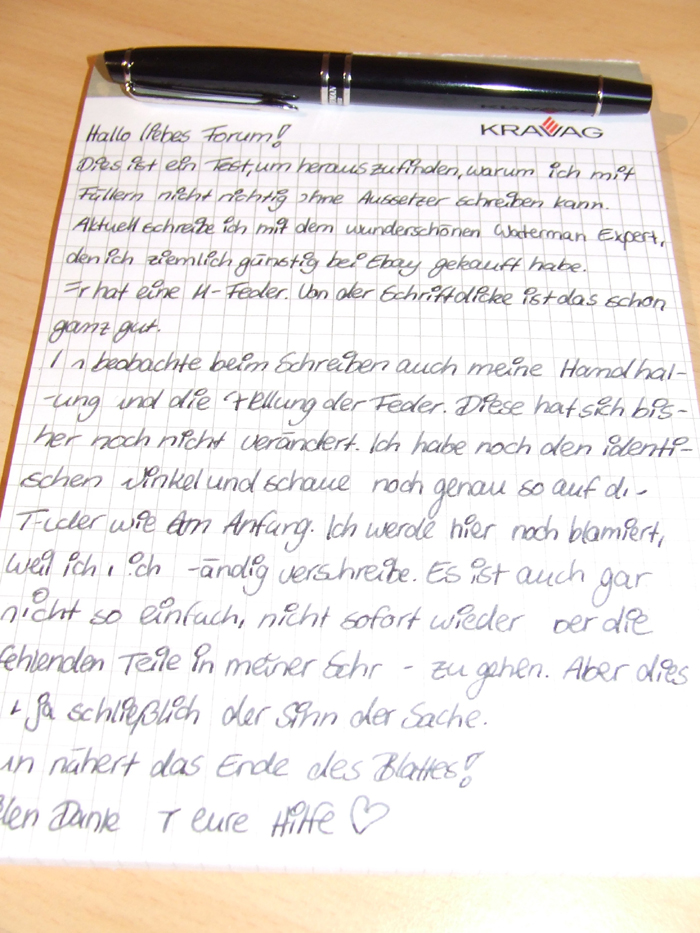 KRAVAG
Hallo liebes Forum!
Dies ist ein Test, um herauszufinden, warum ich mit
Füllern nicht richtig ohne Aussetzer schreiben kann.
Aktuell schreibe ich mit dem wunderschönen Waterman Expert,
den ich ziemlich günstig bei Ebay gekauft habe.
Er hat eine M-Feder. Von der Schriftdicke ist das schon
ganz gut.
beobachte beim Schreiben auch meine Handhal-
-ung und die tellung der Feder. Diese hat sich bis-
her noch nicht verändert. Ich habe noch den identi-
schen Winkel und schaue noch genau so auf di
Feder wie am Anfang. Ich werde hier noch blamiert,
weil ich ich -ändig verschreibe. Es ist auch gar
nicht so einfach, nicht sofort wieder ber die
fehlenden Teile in meiner Schr - zu gehen. Aber dies
t ja schließlich der Sinn der Sache.
un nähert das Ende des Blattes!
len Dank eure Hilfe ♡